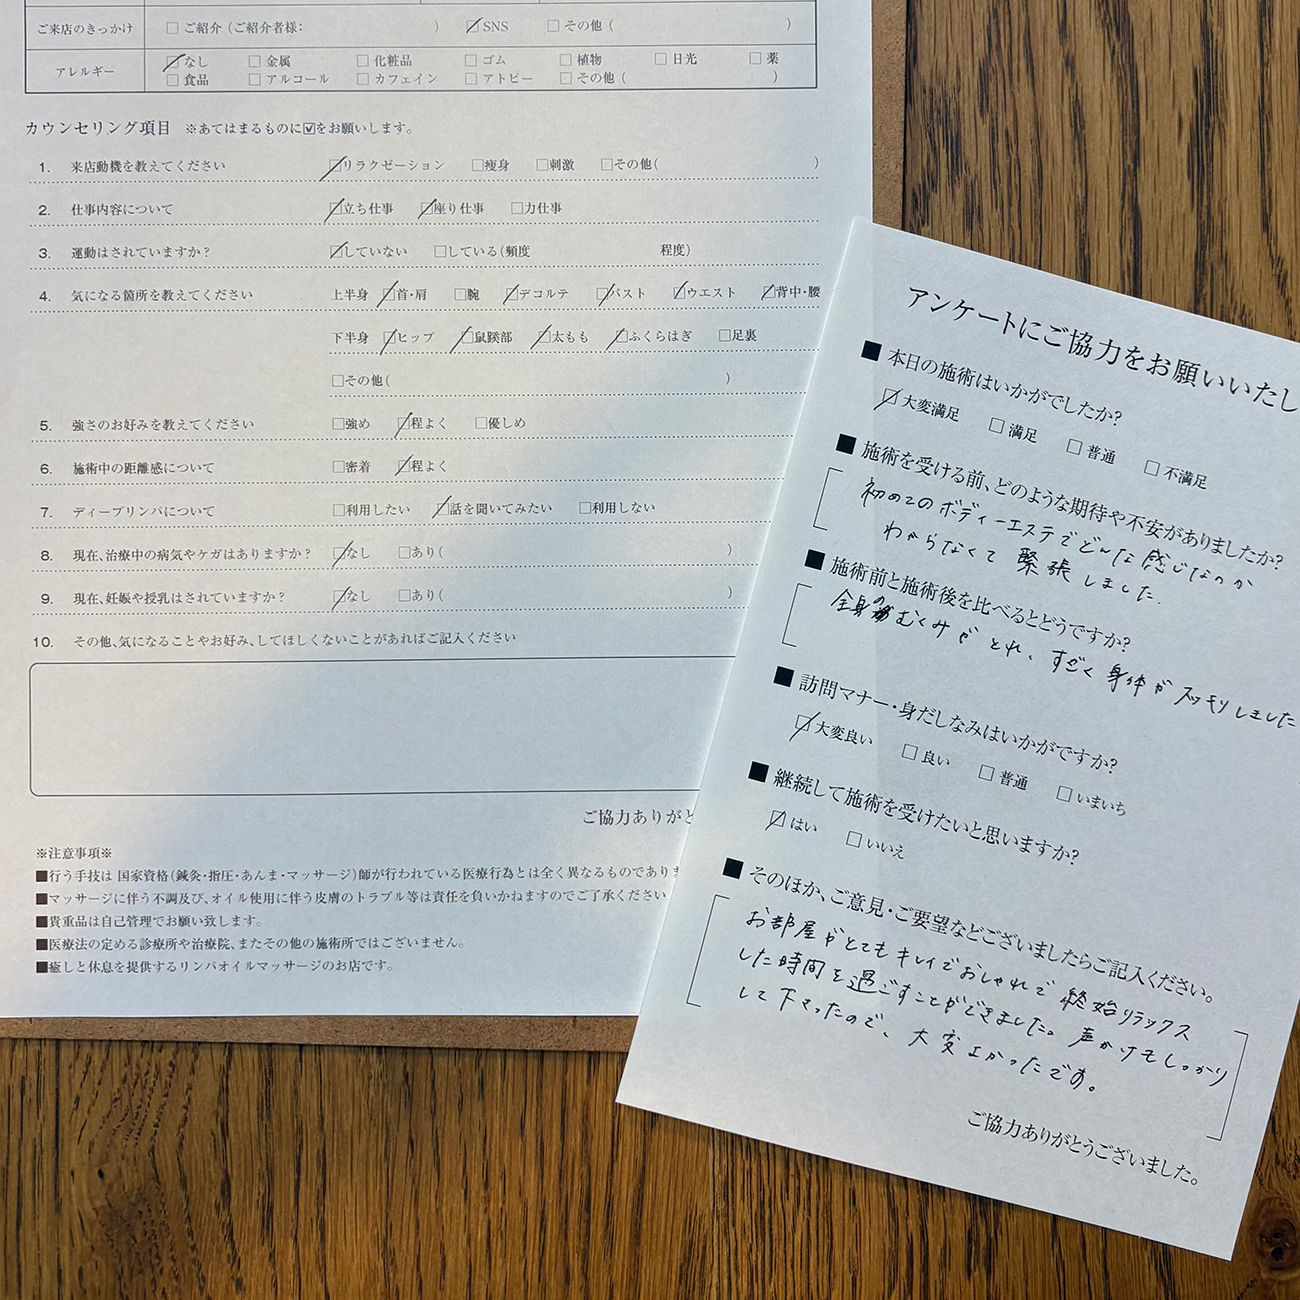 ご来店のきっかけ □ ご紹介（ご紹介者様： ） ☑ SNS □ その他（ ）
アレルギー ☑ なし □ 金属 □ 化粧品 □ ゴム □ 植物 □ 日光 □ 薬
□ 食品 □ アルコール □ カフェイン □ アトピー □ その他（ ）
カウンセリング項目 ※あてはまるものに☑をお願いします。
1. 来店動機を教えてください ☑リラクゼーション □痩身 □刺激 □その他（ ）
2. 仕事内容について ☑立ち仕事 ☑座り仕事 □力仕事
3. 運動はされていますか？ ☑していない □している（頻度 程度）
4. 気になる箇所を教えてください 上半身 ☑首・肩 □腕 ☑デコルテ ☑バスト ☑ウエスト ☑背中・腰
下半身 ☑ヒップ ☑鼠蹊部 ☑太もも ☑ふくらはぎ □足裏
□その他（ ）
5. 強さのお好みを教えてください □強め ☑程よく □優しめ
6. 施術中の距離感について □密着 ☑程よく
7. ディープリンパについて □利用したい ☑話を聞いてみたい □利用しない
8. 現在、治療中の病気やケガはありますか？ ☑なし □あり（ ）
9. 現在、妊娠や授乳はされていますか？ ☑なし □あり（ ）
10. その他、気になることやお好み、してほしくないことがあればご記入ください
ご協力ありがと
※注意事項※
■行う手技は 国家資格（鍼灸・指圧・あんま・マッサージ）師が行われている医療行為とは全く異なるものでありま
■マッサージに伴う不調及び、オイル使用に伴う皮膚のトラブル等は責任を負いかねますのでご了承ください
■貴重品は自己管理でお願い致します。
■医療法の定める診療所や治療院、またその他の施術所ではございません。
■癒しと休息を提供するリンパオイルマッサージのお店です。
アンケートにご協力をお願いいたし
■ 本日の施術はいかがでしたか？
☑ 大変満足 □ 満足 □ 普通 □ 不満足
■ 施術を受ける前、どのような期待や不安がありましたか？
初めてのボディーエステでどんな感じなのか
わからなくて 緊張しました.
■ 施術前と施術後を比べるとどうですか？
全身のむくみがとれ、すごく身体がスッキリしました
■ 訪問マナー・身だしなみはいかがですか？
☑ 大変良い □ 良い □ 普通 □ いまいち
■ 継続して施術を受けたいと思いますか？
☑ はい □ いいえ
■ そのほか、ご意見・ご要望などございましたらご記入ください。
お部屋がとてもキレイでおしゃれで 終始リラックス
した時間を過ごすことができました。声かけもしっかり
して下さったので、大変よかったです。
ご協力ありがとうございました。